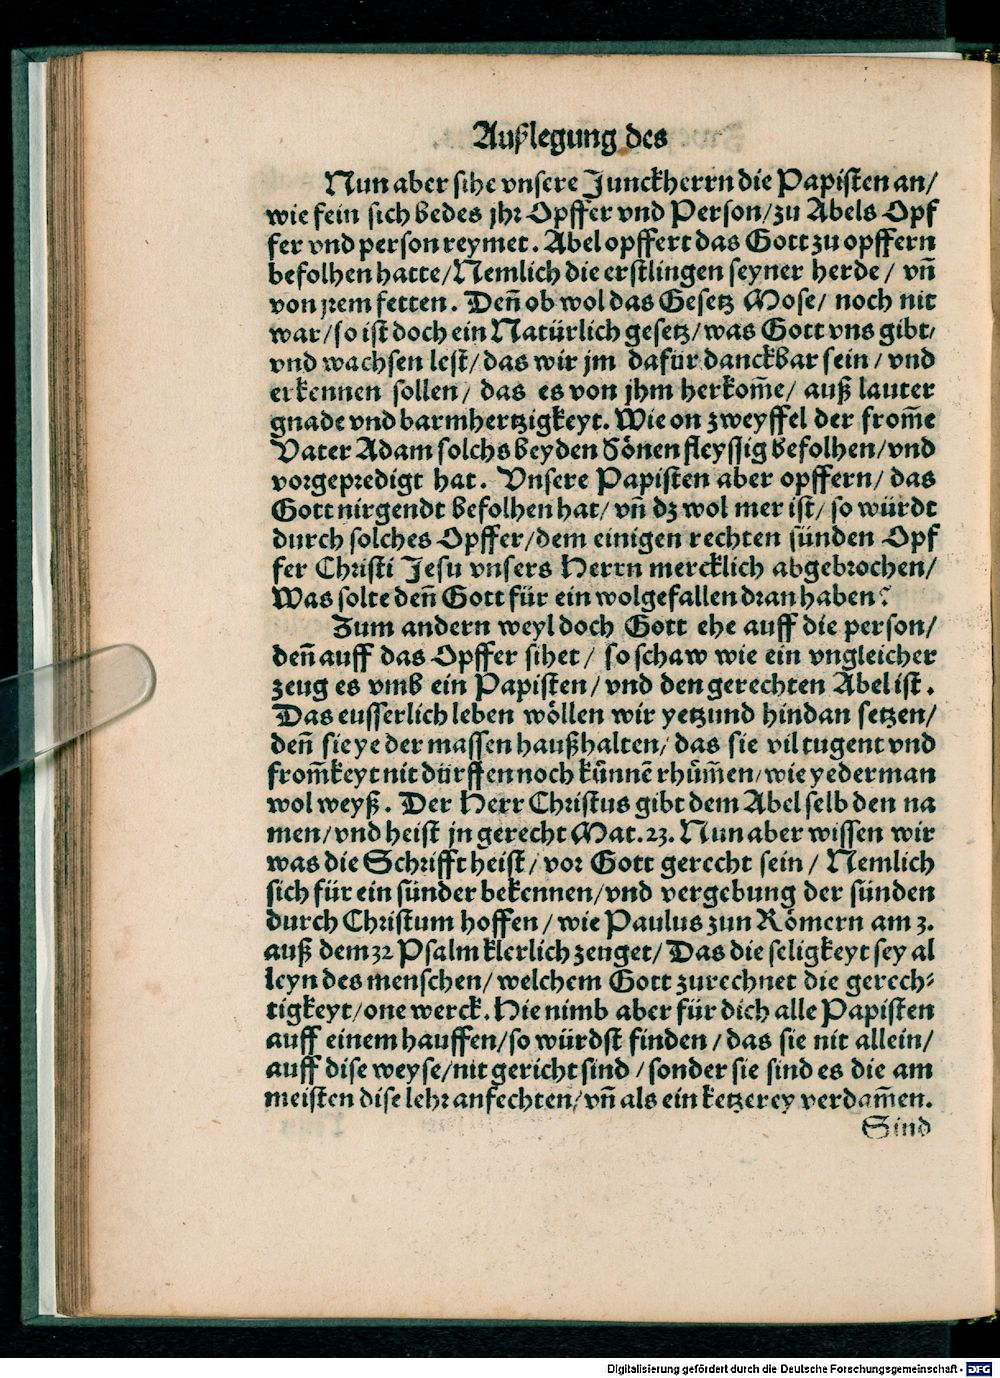 Außlegung des
Nun aber sihe vnsere Junckherrn die Papisten an/
wie fein sich bedes jhr Opffer vnd Person/zu Abels Opf
fer vnd person reymet. Abel opffert das Gott zu opffern
befolhen hatte/Nemlich die erstlingen seyner herde/ vñ
von jrem fetten. Deñ ob wol das Gesetz Mose/ noch nit
war/so ist doch ein Natürlich gesetz/was Gott vns gibt/
vnd wachsen lest/das wir jm dafür danckbar sein/vnd
erkennen sollen/ das es von jhm herkom̃e/ auß lauter
gnade vnd barmhertzigkeyt. Wie on zweyffel der from̃e
Vater Adam solchs beyden Sönen fleyssig befolhen/vnd
vorgepredigt hat. Vnsere Papisten aber opffern/ das
Gott nirgendt befolhen hat/ vñ dz wol mer ist/ so würdt
durch solches Opffer/dem einigen rechten sünden Opf
fer Christi Jesu vnsers Herrn mercklich abgebrochen/
Was solte deñ Gott für ein wolgefallen dran haben?
Zum andern weyl doch Gott ehe auff die person/
deñ auff das Opffer sihet/ so schaw wie ein vngleicher
zeug es vmb ein Papisten/vnd den gerechten Abel ist.
Das eusserlich leben wöllen wir yetzund hindan setzen/
deñ sie ye der massen haußhalten/das sie vil tugent vnd
from̃keyt nit dürffen noch künnẽ rhüm̃en/wie yederman
wol weyß. Der Herr Christus gibt dem Abel selb den na
men/vnd heist jn gerecht Mat.23. Nun aber wissen wir
was die Schrifft heist/vor Gott gerecht sein/ Nemlich
sich für ein sünder bekennen/vnd vergebung der sünden
durch Christum hoffen/wie Paulus zun Römern am 3.
auß dem 32 Psalm klerlich zeuget/Das die seligkeyt sey al
leyn des menschen/welchem Gott zurechnet die gerech⸗
tigkeyt/one werck. Hie nimb aber für dich alle Papisten
auff einem hauffen/so würdst finden/das sie nit allein/
auff dise weyse/nit gericht sind/sonder sie sind es die am
meisten dise lehr anfechten/vñ als ein ketzerey verdam̃en.
Sind
Digitalisierung gefördert durch die Deutsche Forschungsgemeinschaft - DFG